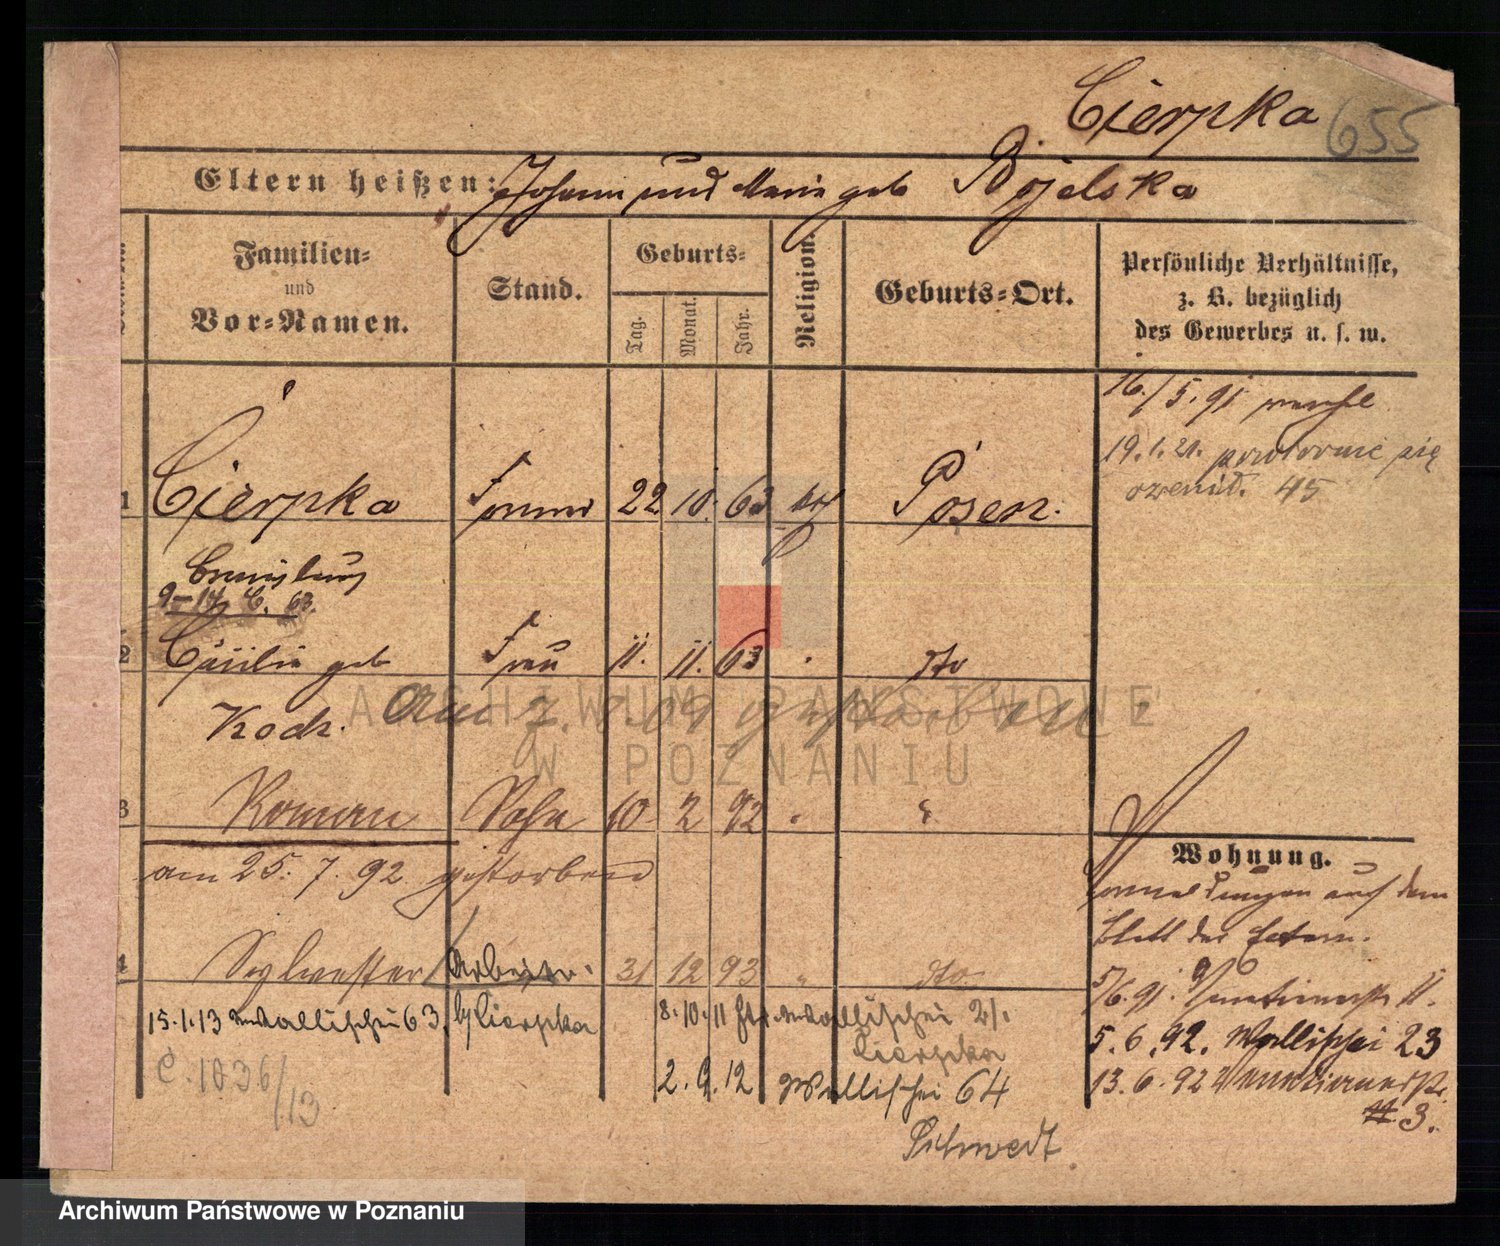 Cierpka 655
Eltern heißen: Johann und Maria geb Bojelska
Familien-
und
Vor-Namen.
Stand.
Geburts-
Tag.
Monat.
Jahr.
Religion.
Geburts-Ort.
Persönliche Verhältnisse,
z. B. bezüglich
des Gewerbes u. s. w.
16./5.91
19.1.21. powtornie się
ożenił. 45
1 Cierpka 22 10. 63 Posen.
9-14 C. 63.
2 Cäcilie geb Frau 11. 11. 63 dto
Kock.
gestorben
3 Roman Sohn 10 2 92
am 25. 7. 92 gestorben
4 Sylwester Arbeiter. 31 12 93 dto
15.1.13 Wallischei 63 b/Cierpka
8.10.11 Wallischei 21.
Cierpka
C. 1036/13
2.9.12 Wallischei 64
Schwedt
Wohnung.
auf dem
Blatt der Eltern.
5/6.91. 11.
5.6.92. Wallischei 23
13.6.92
# 3.
ARCHIWUM PAŃSTWOWE
W POZNANIU
Archiwum Państwowe w Poznaniu